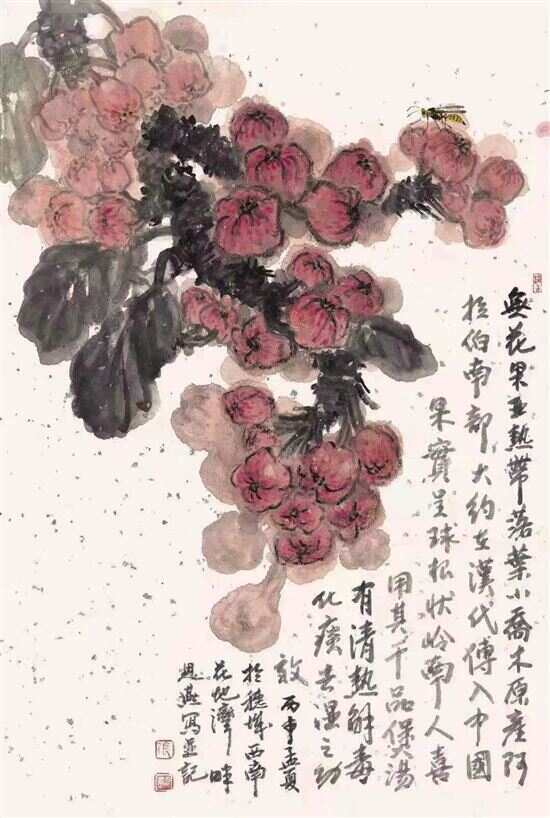 無花果亚熱帶落葉小喬木原産阿
拉伯南部大约在漢代傳入中國
果實呈球根状岭南人喜
用其干品煲湯
有清熱解毒
化痰去湿之功
效 丙申孟夏
於穗城西南
花地灣畔
思燕寫並記